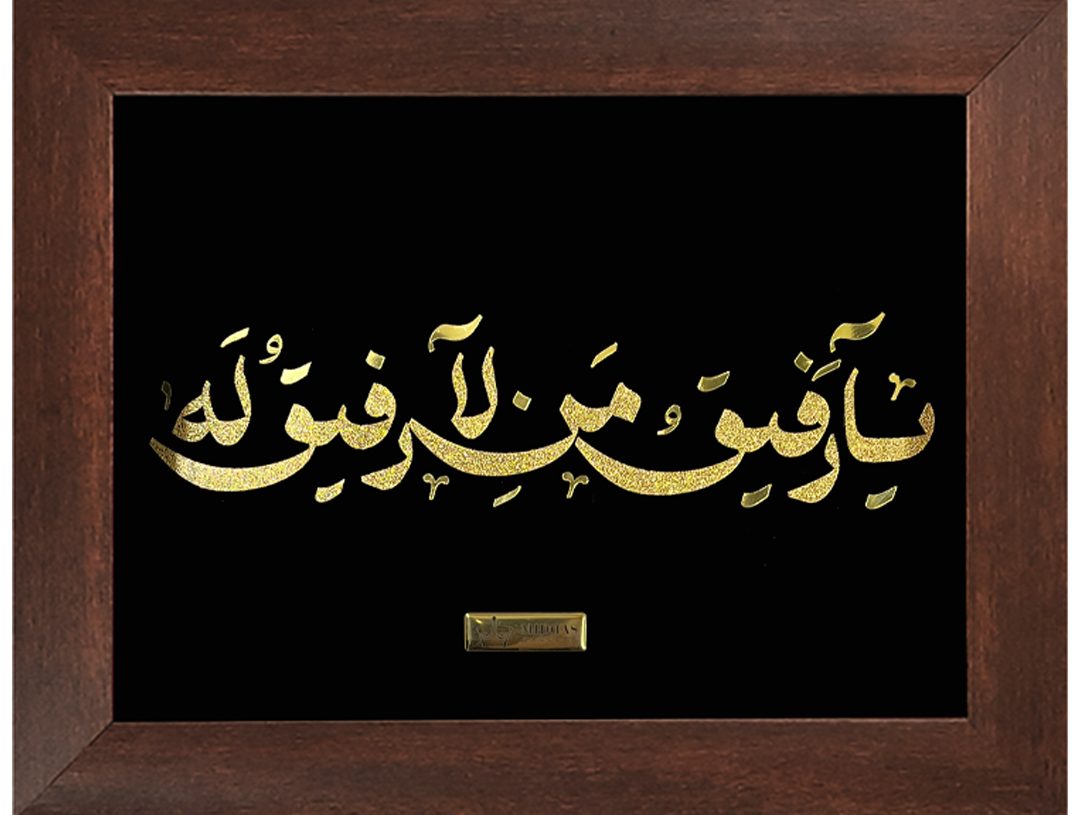 يا رَفيقُ مَن لا رَفيقُ لَه